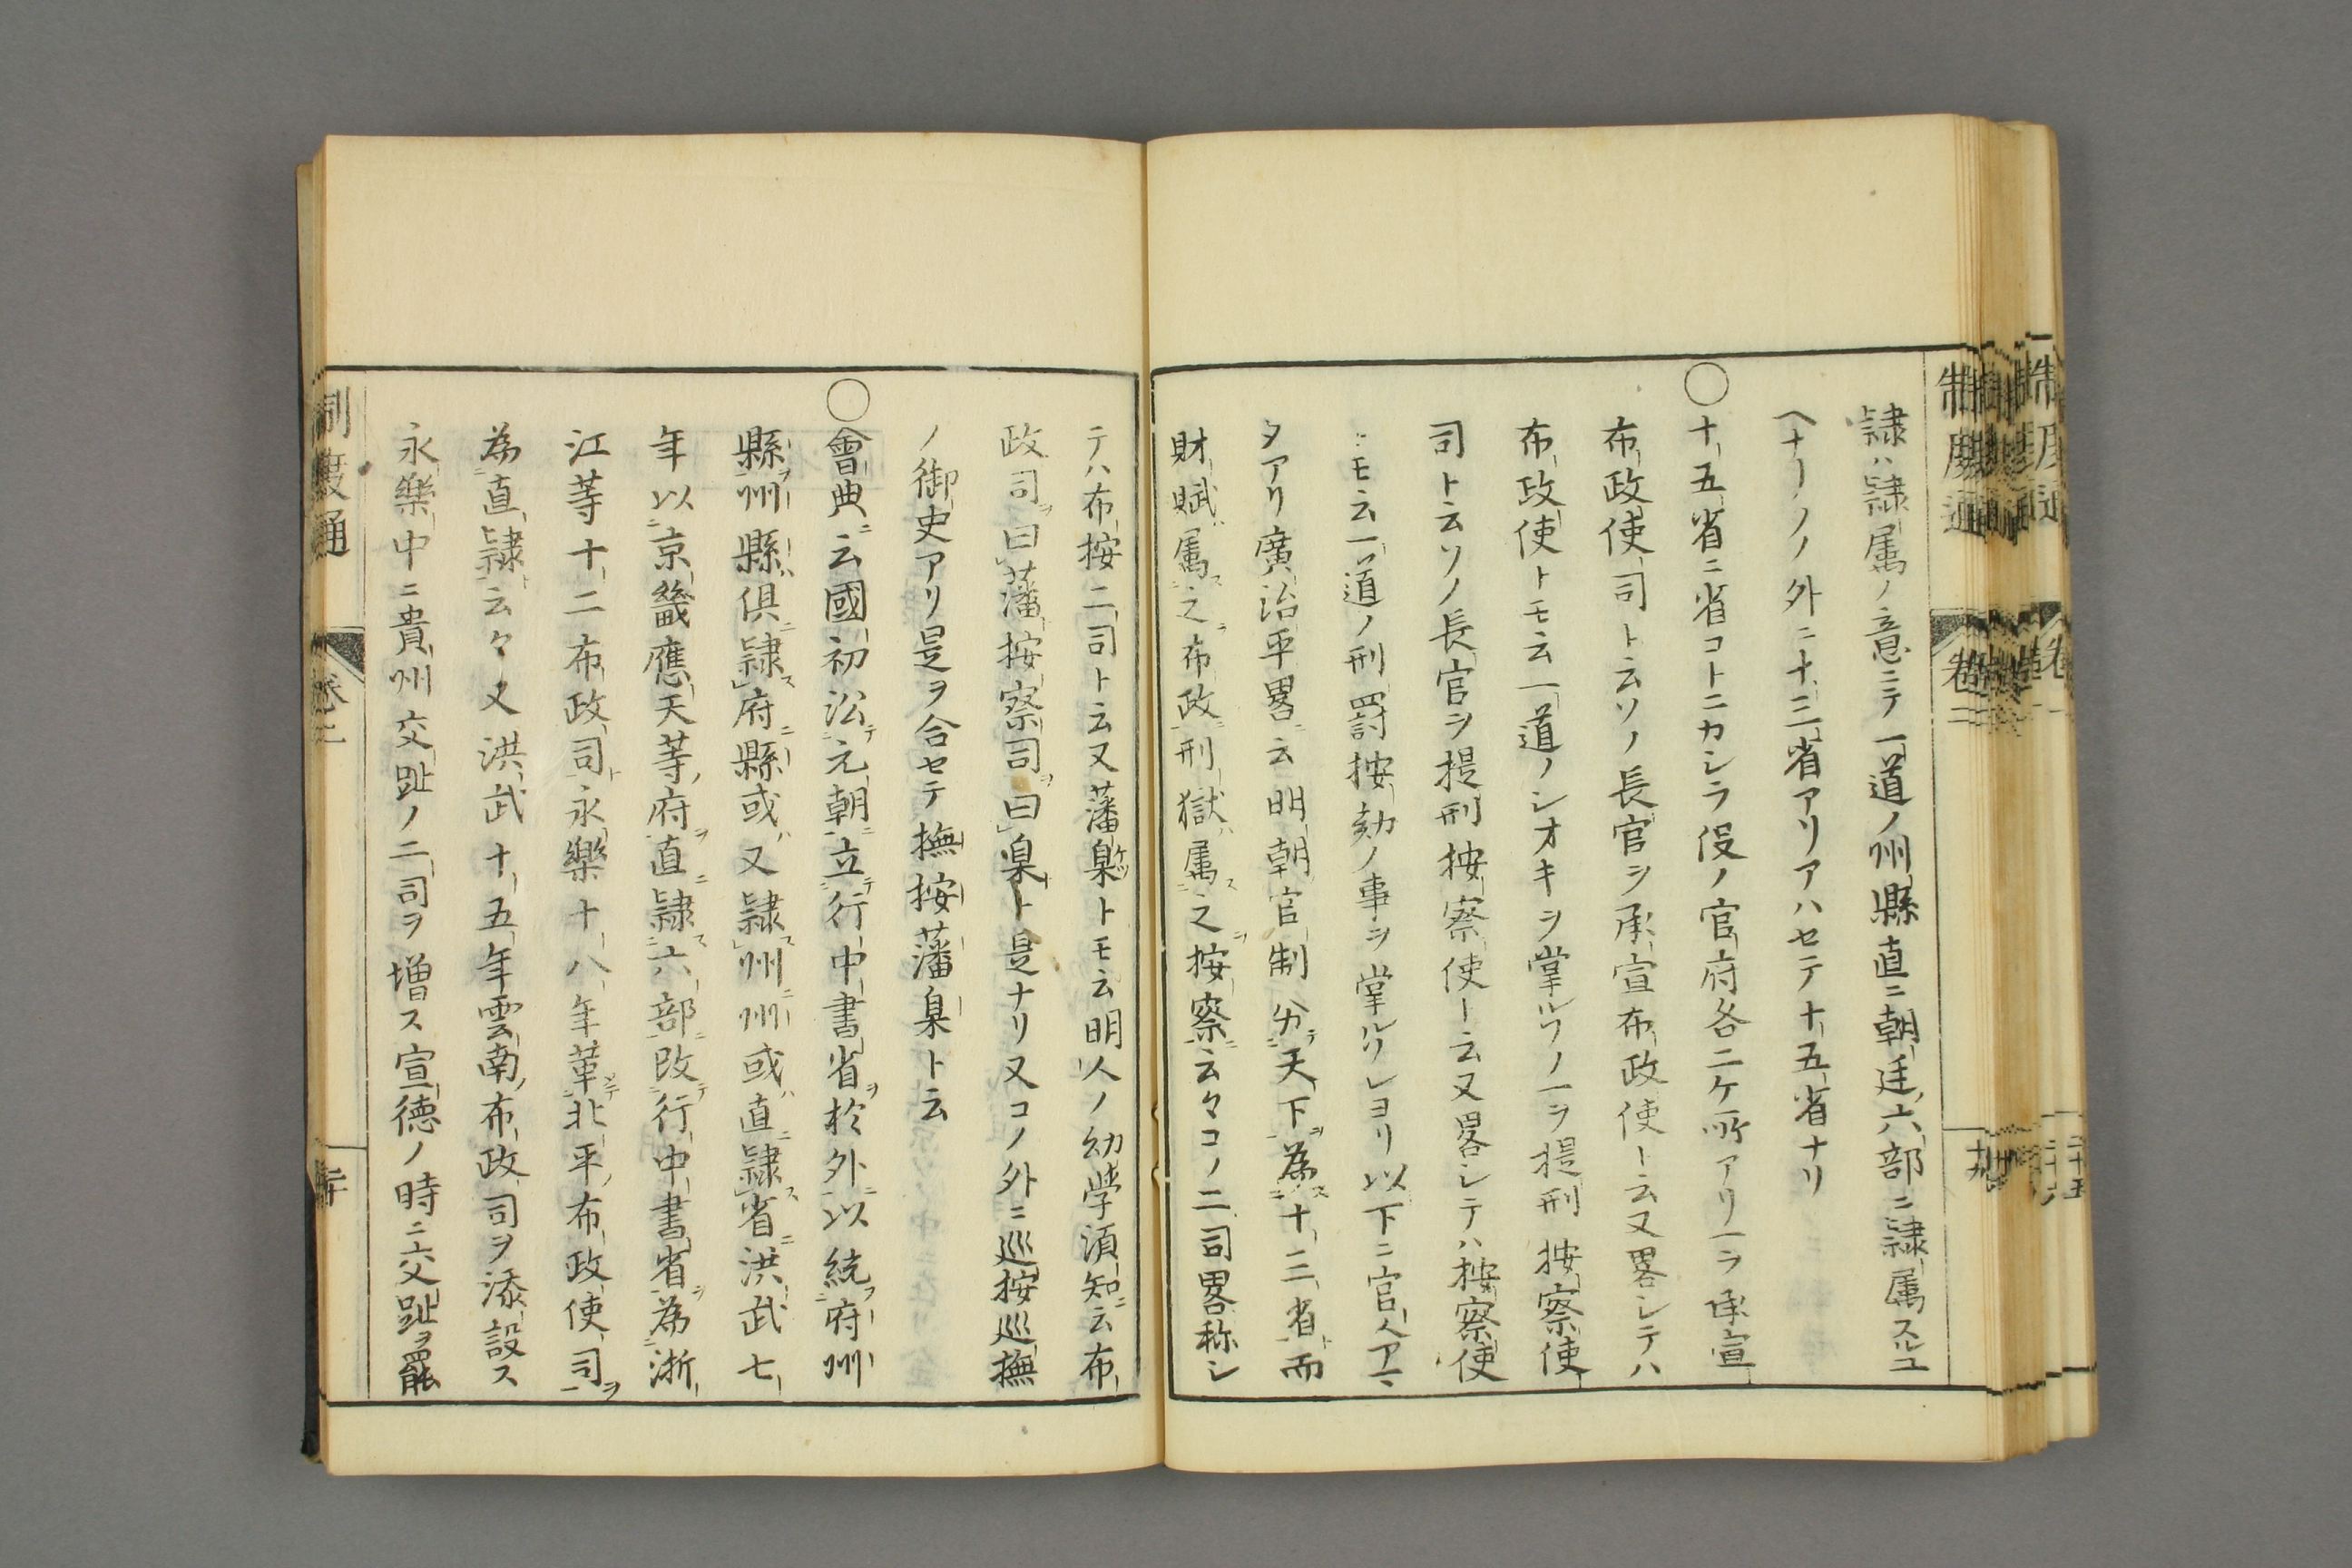 隷ハ隷属ノ意ニテ一道ノ州縣直ニ朝廷ノ六部ニ隷属スルユ
ヘナリソノ外ニ十三省アリアハセテ十五省ナリ
○十五省ニ省コトニカシラ役ノ官府各二ケ所アリ一ヲ承宣
布政使司ト云ソノ長官ヲ承宣布政使ト云又畧シテハ
布政使トモ云一道ノシオキヲ掌ル所ノ一ヲ提刑按察使
司ト云ソノ長官ヲ提刑按察使ト云又畧シテハ按察使
トモ云一道ノ刑罸按劾ノ事ヲ掌ルソレヨリ以下ニ官人アマ
タアリ廣治平畧云明朝官制分天下為十三省而
財賦属之布政刑獄属之按察云々コノ二司畧称シ
テハ布按二司ト云又藩臬トモ云明人ノ幼学須知云布
政司曰藩按察司曰臬ト是ナリ又コノ外ニ巡按巡撫
ノ御史アリ是ヲ合セテ撫按藩臬ト云
○會典云國初㳂元朝立行中書省於外以統府州
縣州縣俱隷府縣或又隷州州或直隷省洪武七
年以京畿應天等府直隷六部改行中書省為浙
江等十二布政司永樂十八年革北平布政使司
為直隷云々又洪武十五年雲南布政司ヲ添設ス
永樂中ニ貴州交趾ノ二司ヲ増ス宣德ノ時ニ交趾ヲ罷
制度通
卷二
二十